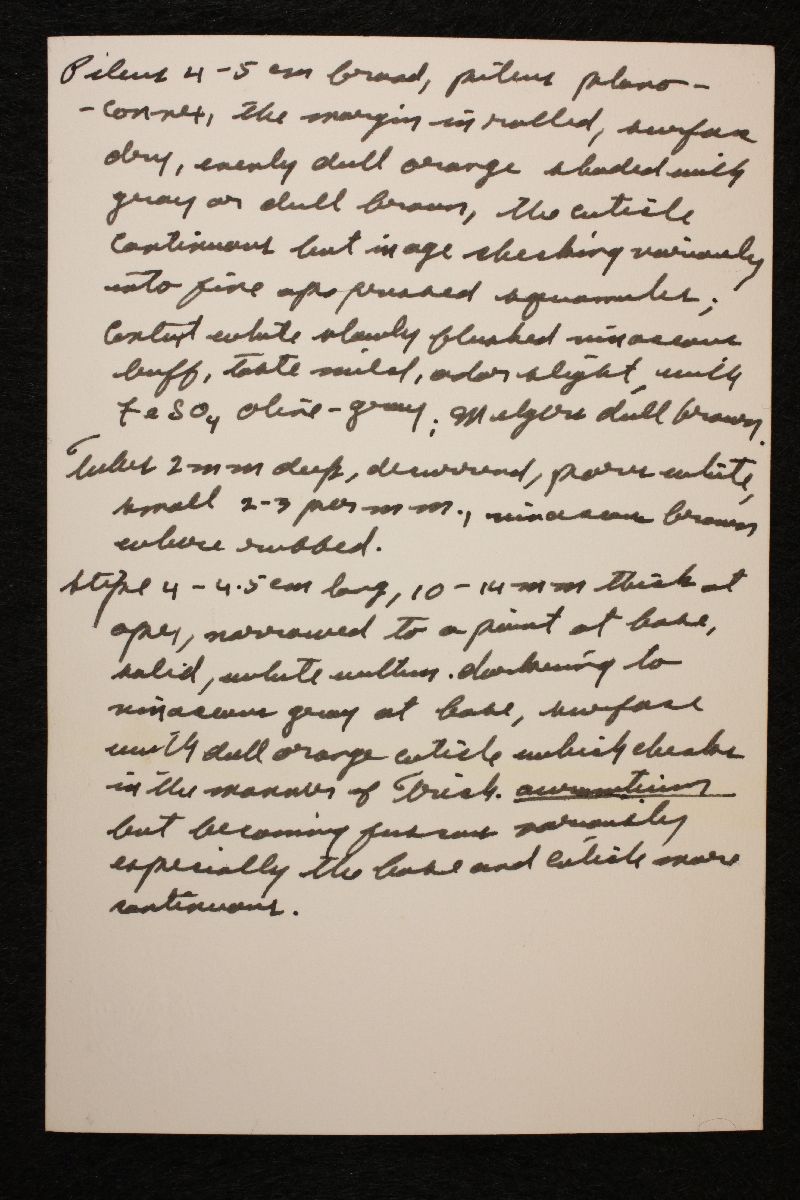 Pileus 4-5 cm broad, pileus plano-
-convex, the margin inrolled, surface
dry, evenly dull orange shaded with
gray or dull brown, the cuticle
continuous but in age checking variously
into fine appressed squamules;
Context white slowly flushed vinaceous
buff, taste mild, odor slight, with
FeSO4 olive-gray; Melzers dull brown.
Tubes 2 mm deep, decurrent, pores white,
small 2-3 per mm., vinaceous brown
where rubbed.
Stipe 4-4.5 cm long, 10-14 mm thick at
apex, narrowed to a point at base,
solid, white within. darkening to
vinaceous gray at base, surface
with dull orange cuticle which checks
in the manner of Trich. aurantium
but becoming fuscous variously
especially the base and cuticle more
continuous.